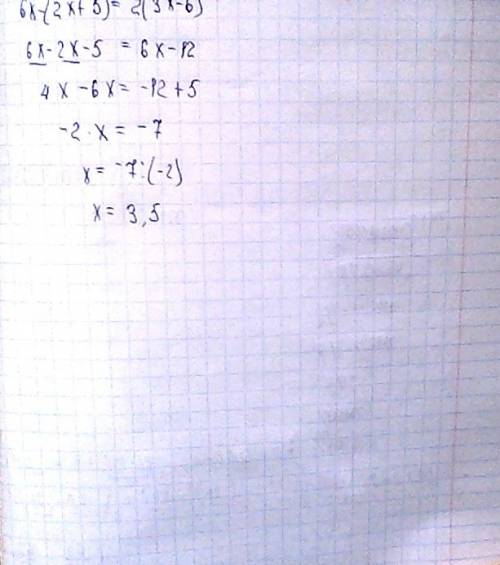 6x-(2x+5)=2(3x-6)
6x-2x-5 = 6x-12
4x-6x=-12+5
-2·x=-7
x=-7:(-2)
x=3,5